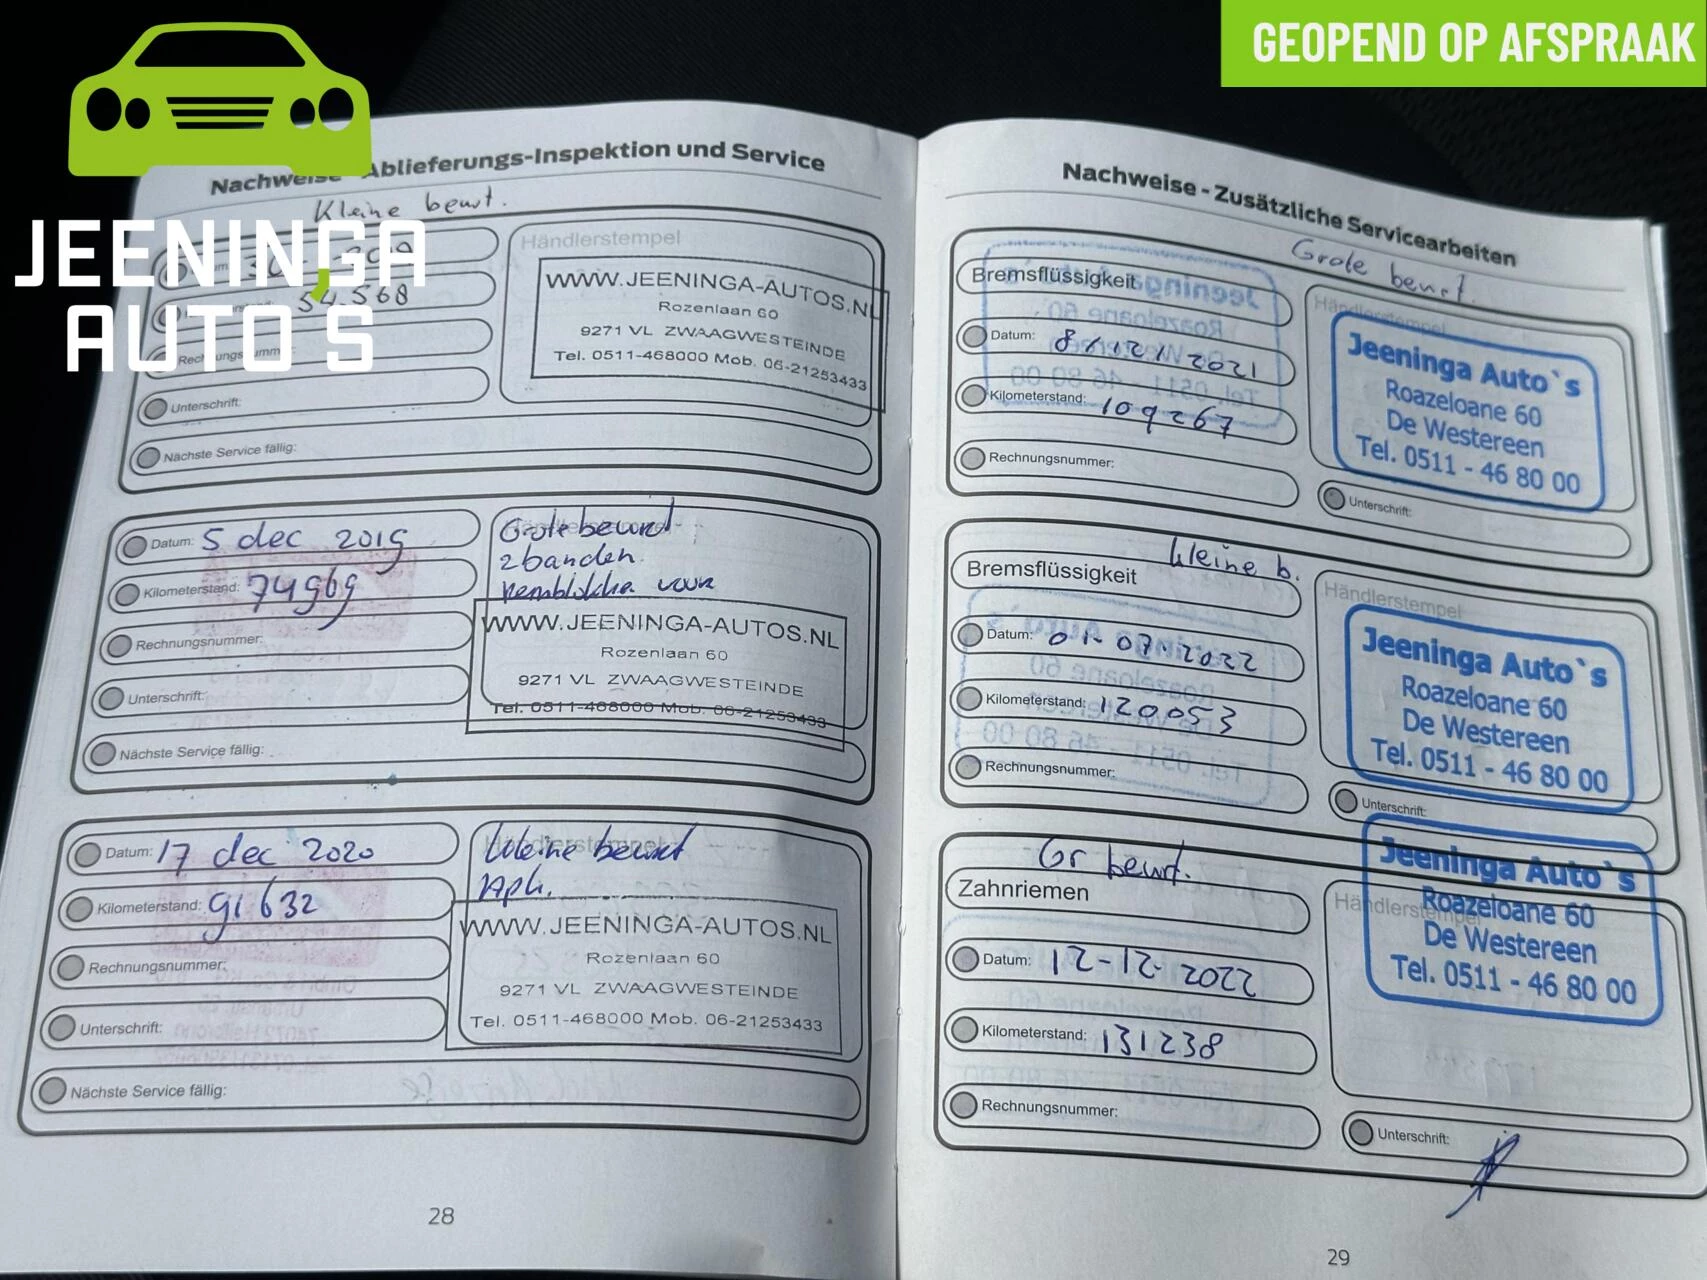 GEOPEND OP AFSPRAAK
JEENINGA
AUTO'S
Nachweise - Ablieferungs-Inspektion und Service
Kleine beurt.
54.568
Rechnungsnummer:
Unterschrift:
Nächste Service fällig:
Händlerstempel
WWW.JEENINGA-AUTOS.NL
Rozenlaan 60
9271 VL ZWAAGWESTEINDE
Tel. 0511-468000 Mob. 06-21253433
Datum: 5 dec 2019
Kilometerstand: 74969
Rechnungsnummer:
Unterschrift:
Nächste Service fällig:
Händlerstempel
Grote beurt
2 banden
remblokken voor
WWW.JEENINGA-AUTOS.NL
Rozenlaan 60
9271 VL ZWAAGWESTEINDE
Tel. 0511-468000 Mob. 06-21253433
Datum: 17 dec 2020
Kilometerstand: 91632
Rechnungsnummer:
Unterschrift:
Nächste Service fällig:
Händlerstempel
Kleine beurt
Apk.
WWW.JEENINGA-AUTOS.NL
Rozenlaan 60
9271 VL ZWAAGWESTEINDE
Tel. 0511-468000 Mob. 06-21253433
28
Nachweise - Zusätzliche Servicearbeiten
Grote beurt.
Bremsflüssigkeit
Datum: 8/12/2021
Kilometerstand: 109267
Rechnungsnummer:
Händlerstempel
Jeeninga Auto`s
Roazeloane 60
De Westereen
Tel. 0511 - 46 80 00
Unterschrift:
kleine b.
Bremsflüssigkeit
Datum: 01-07-2022
Kilometerstand: 120053
Rechnungsnummer:
Händlerstempel
Jeeninga Auto`s
Roazeloane 60
De Westereen
Tel. 0511 - 46 80 00
Unterschrift:
Gr beurt.
Zahnriemen
Datum: 12-12-2022
Kilometerstand: 131238
Rechnungsnummer:
Händlerstempel
Jeeninga Auto`s
Roazeloane 60
De Westereen
Tel. 0511 - 46 80 00
Unterschrift:
29